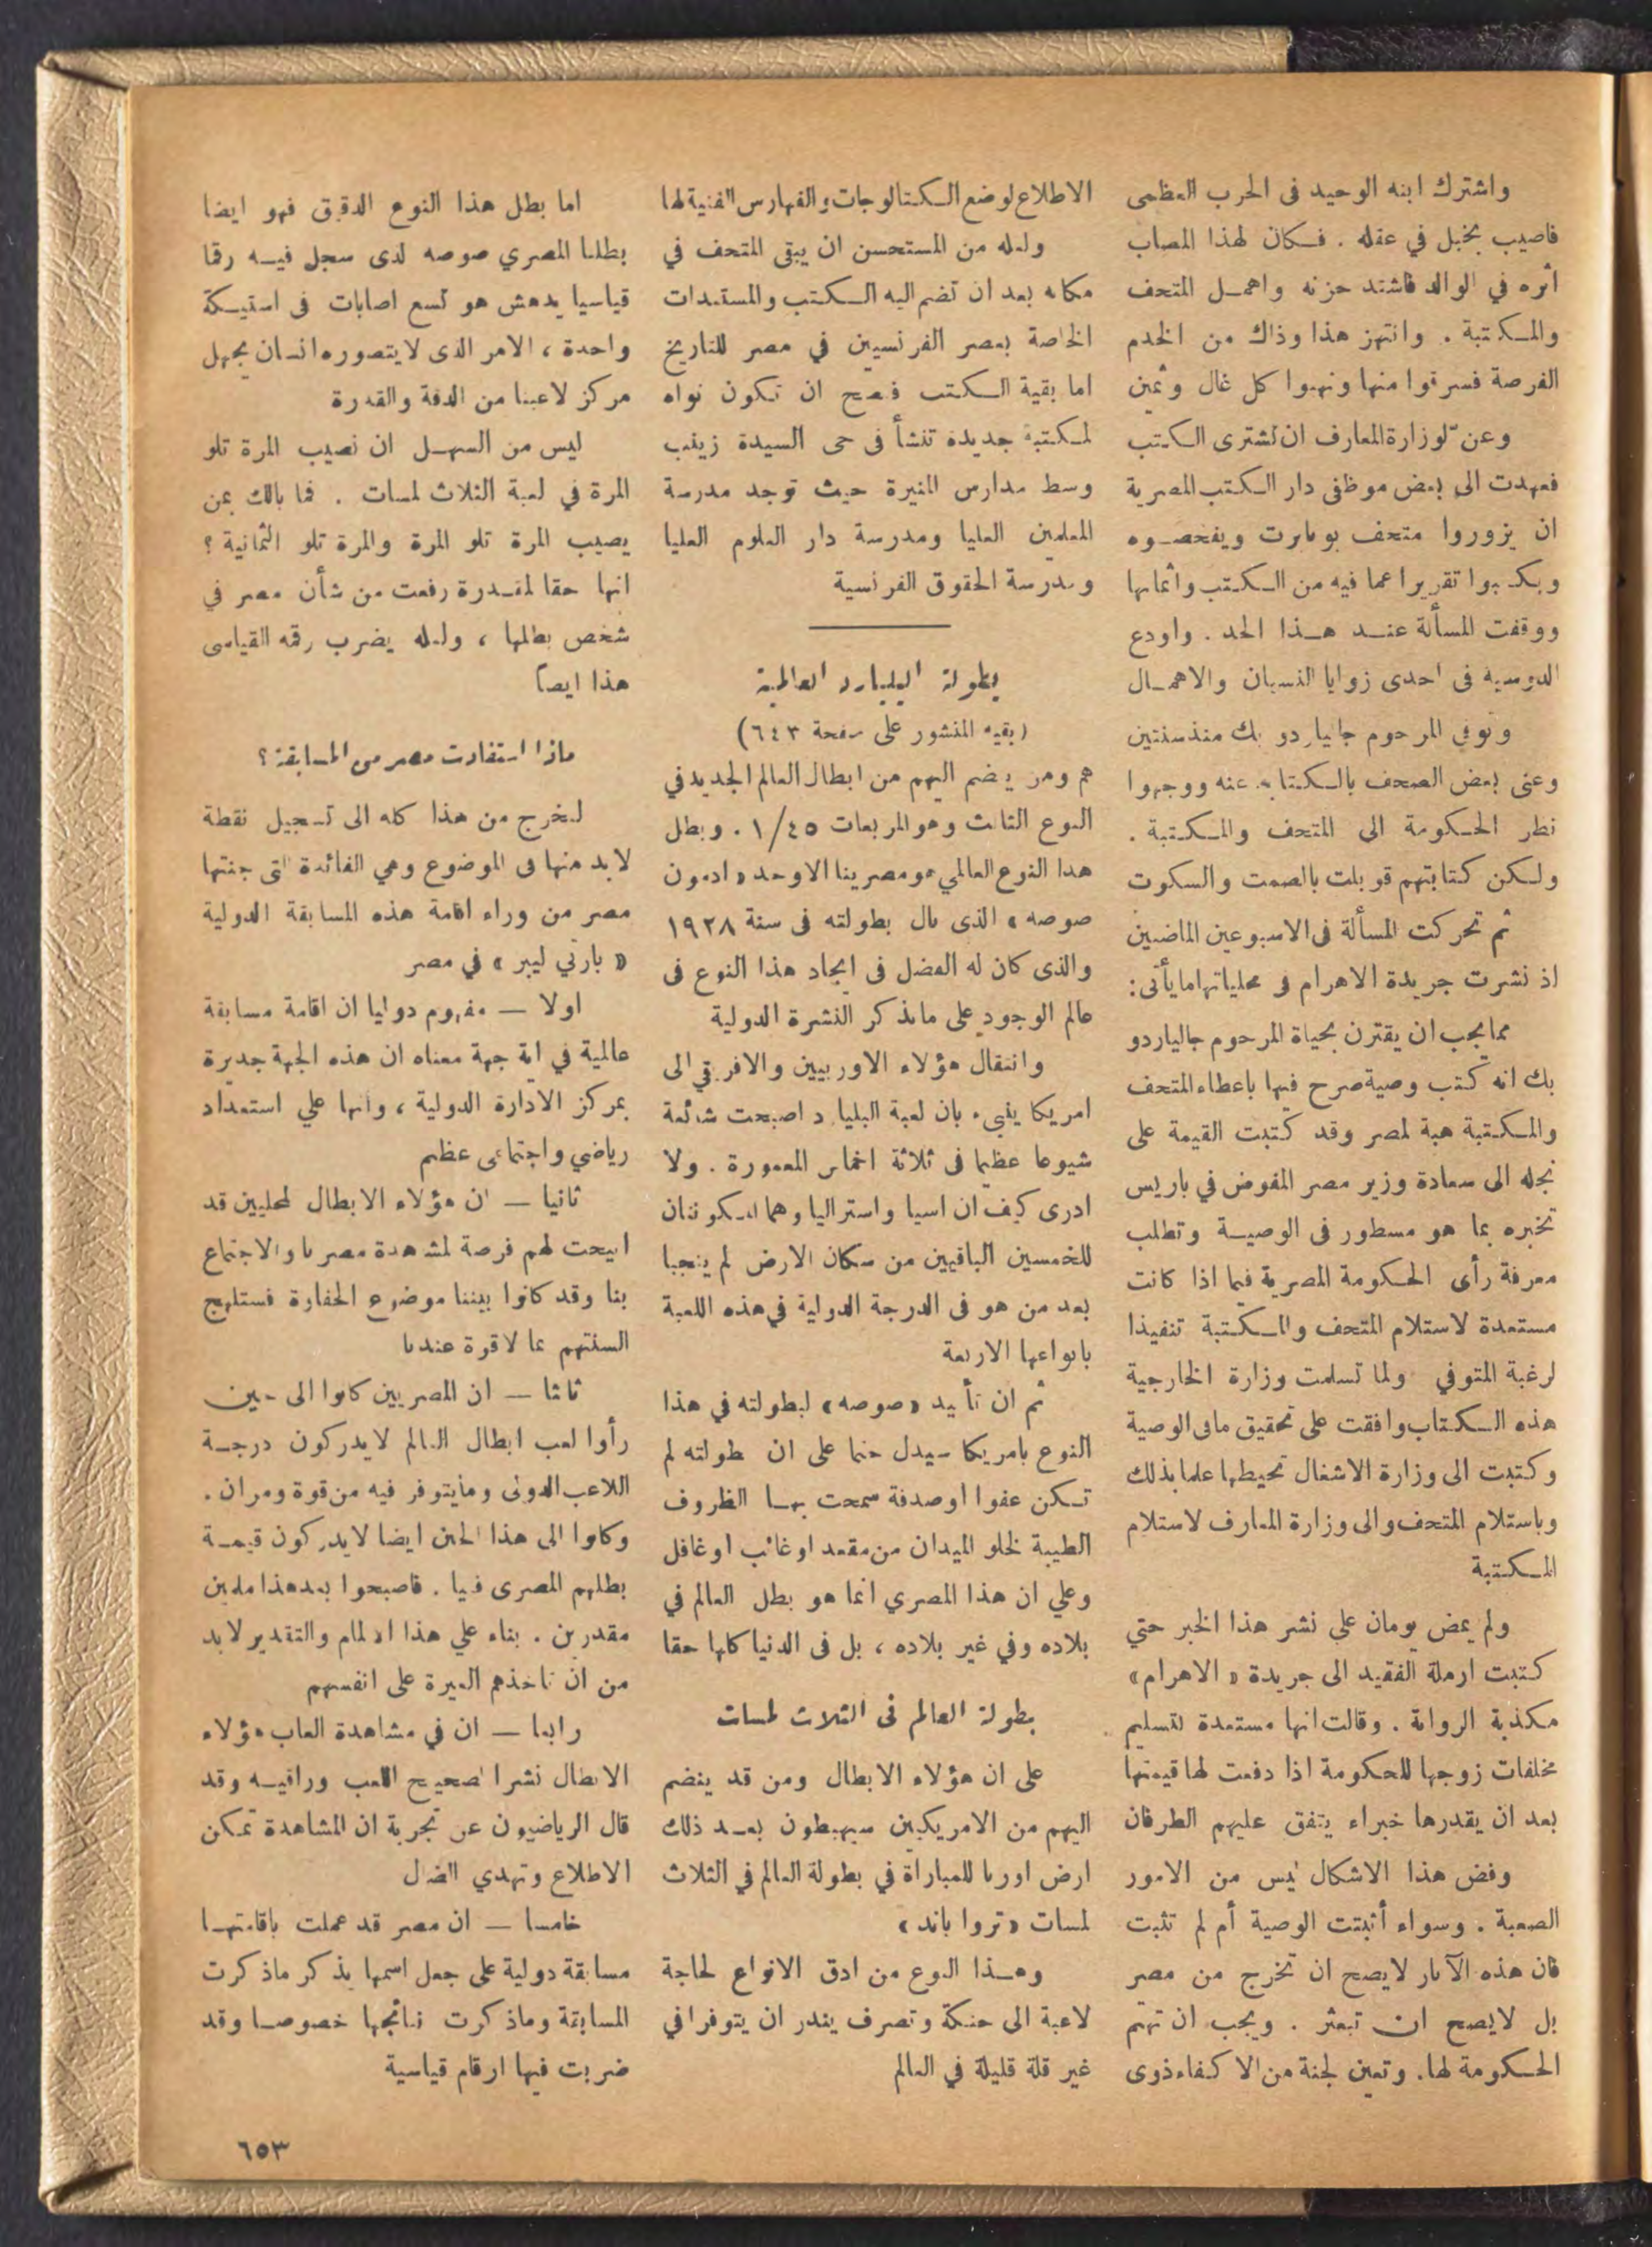 واشترك ابنه الوحيد فى الحرب العظمى
فاصيب بخبل في عقله . فكان لهذا المصاب
أثره في الوالد فاشتد حزنه واهمل المتحف
والمكتبة . وانتهز هذا وذاك من الخدم
الفرصة فسرقوا منها ونهبوا كل غال وثمين
وعنّ لوزارة المعارف ان تشترى الكتب
فعهدت الى بعض موظفى دار الكتب المصرية
ان يزوروا متحف بونابرت ويفحصوه
ويكتبوا تقريرا عما فيه من الكتب واثمانها
ووقفت المسألة عند هذا الحد . واودع
الدوسيه فى احدى زوايا النسيان والاهمال
وتوفي المرحوم جاليار دو بك منذ سنتين
وعنى بعض الصحف بالكتابة عنه ووجهوا
نظر الحكومة الى المتحف والمكتبة .
ولكن كتابتهم قوبلت بالصمت والسكوت
ثم تحركت المسألة فى الاسبوعين الماضيين
اذ نشرت جريدة الاهرام فى محلياتها ما يأتى :
مما يجب ان يقترن بحياة المرحوم جالياردو
بك انه كتب وصية صرح فيها باعطاء المتحف
والمكتبة هبة لمصر وقد كتبت القيمة على
نجله الى سعادة وزير مصر المفوض في باريس
تخبره بما هو مسطور فى الوصية وتطلب
معرفة رأى الحكومة المصرية فيما اذا كانت
مستعدة لاستلام المتحف والمكتبة تنفيذا
لرغبة المتوفي ولما تسلمت وزارة الخارجية
هذه الكتاب وافقت على تحقيق مافى الوصية
وكتبت الى وزارة الاشغال تحيطها علما بذلك
وباستلام المتحف والى وزارة المعارف لاستلام
المكتبة
ولم يمض يومان علي نشر هذا الخبر حتي
كتبت ارملة الفقيد الى جريدة « الاهرام »
مكذبة الرواية . وقالت انها مستعدة لتسليم
مخلفات زوجها للحكومة اذا دفعت لها قيمتها
بعد ان يقدرها خبراء يتفق عليهم الطرفان
وفض هذا الاشكال ليس من الامور
الصعبة . وسواء أثبتت الوصية أم لم تثبت
فان هذه الآثار لا يصح ان تخرج من مصر
بل لايصح ان تبعثر . ويجب ان تهتم
الحكومة لها. وتعين لجنة من الاكفاء ذوى
الاطلاع لوضع الكتالوجات والفهارس الفنية لها
ولعله من المستحسن ان يبقى المتحف في
مكانه بعد ان تضم اليه الكتب والمستندات
الخاصة بعصر الفرنسيين في مصر للتاريخ
اما بقية الكتب فيصح ان تكون نواه
لمكتبة جديدة تنشأ فى حى السيدة زينب
وسط مدارس المنيرة حيث توجد مدرسة
المعلمين العليا ومدرسة دار العلوم العليا
ومدرسة الحقوق الفرنسية
بطولة البليارد العالمية
( بقية المنشور على صفحة ٦٤٣ )
هم ومن ينضم اليهم من ابطال العالم الجديد في
النوع الثالث وهو المربعات ١/٤٥ . وبطل
هذا النوع العالمي هو مصرينا الاوحد « ادمون
صوصه » الذى نال بطولته فى سنة ١٩٢٨
والذى كان له الفضل فى ايجاد هذا النوع فى
عالم الوجود على ماتذكر النشرة الدولية
وانتقال هؤلاء الاوربيين والافريقي الى
امريكا ينبىء بان لعبة البليارد اصبحت شائعة
شيوعا عظيما فى ثلاثة اخماس المعمورة . ولا
ادرى كيف ان اسيا واستراليا وهما المكونتان
للخمسين الباقيين من سكان الارض لم ينجبا
بعد من هو فى الدرجة الدولية في هذه اللعبة
بانواعها الاربعة
ثم ان تأييد «صوصه» لبطولته في هذا
النوع بامريكا سيدل حتما على ان بطولته لم
تكن عفوا او صدفة سمحت بها الظروف
الطيبة لخلو الميدان من مقعد او غائب او غافل
وعلي ان هذا المصري انما هو بطل العالم في
بلاده وفي غير بلاده ، بل فى الدنيا كلها حقا
بطولة العالم فى الثلاث لمسات
على ان هؤلاء الابطال ومن قد ينضم
اليهم من الامريكيين سيهبطون بعد ذلك
ارض اوربا للمباراة في بطولة العالم في الثلاث
لمسات «تروا باند»
وهذا النوع من ادق الانواع لحاجة
لاعبة الى حنكة وتصرف يندر ان يتوفرا في
غير قلة قليلة في العالم
اما بطل هذا النوع الدقيق فهو ايضا
بطلنا المصري صوصه لذى سجل فيه رقما
قياسيا يدهش هو تسع اصابات فى استيكة
واحدة ، الامر الذى لا يتصوره انسان يجهل
مركز لاعبنا من الدقة والقدرة
ليس من السهل ان نصيب المرة تلو
المرة في لعبة الثلاث لمسات . فما بالك بمن
يصيب المرة تلو المرة والمرة تلو الثمانية ؟
انها حقا لمقدرة رفعت من شأن مصر في
شخص بطلها ، ولعله يضرب رقمه القياسى
هذا ايضاً
ماذا استفادت مصر من المسابقة ؟
لنخرج من هذا كله الى تسجيل نقطة
لابد منها فى الموضوع وهي الفائدة التى جنتها
مصر من وراء اقامة هذه المسابقة الدولية
« بارتي ليبر » في مصر
اولا — مفهوم دوليا ان اقامة مسابقة
عالمية في اية جهة معناه ان هذه الجهة جديرة
بمركز الادارة الدولية ، وانها علي استعداد
رياضي واجتماعى عظيم
ثانيا — ان هؤلاء الابطال لمحليين قد
اتيحت لهم فرصة لمشاهدة مصرنا والاجتماع
بنا وقد كانوا بيننا موضوع الحفاوة فستلهج
السنتهم بما لاقوة عندنا
ثالثا — ان المصريين كانوا الى حين
رأوا لعب ابطال العالم لا يدركون درجة
اللاعب الدولى ومايتوفر فيه من قوة ومران .
وكانوا الى هذا الحين ايضا لايدركون قيمة
بطلهم المصرى فنيا . فاصبحوا بعد هذا ملمين
مقدرين . بناء علي هذا الالمام والتقدير لابد
من ان تاخذهم الغيرة على انفسهم
رابعا — ان في مشاهدة العاب هؤلاء
الابطال نشرا لصحيح اللعب وراقيه وقد
قال الرياضيون عن تجربة ان المشاهدة تمكن
الاطلاع وتهدي الضال
خامسا — ان مصر قد عملت باقامتها
مسابقة دولية على جعل اسمها يذكر ماذكرت
المسابقة وماذكرت نتائجها خصوصا وقد
ضربت فيها ارقام قياسية
٦٥٣